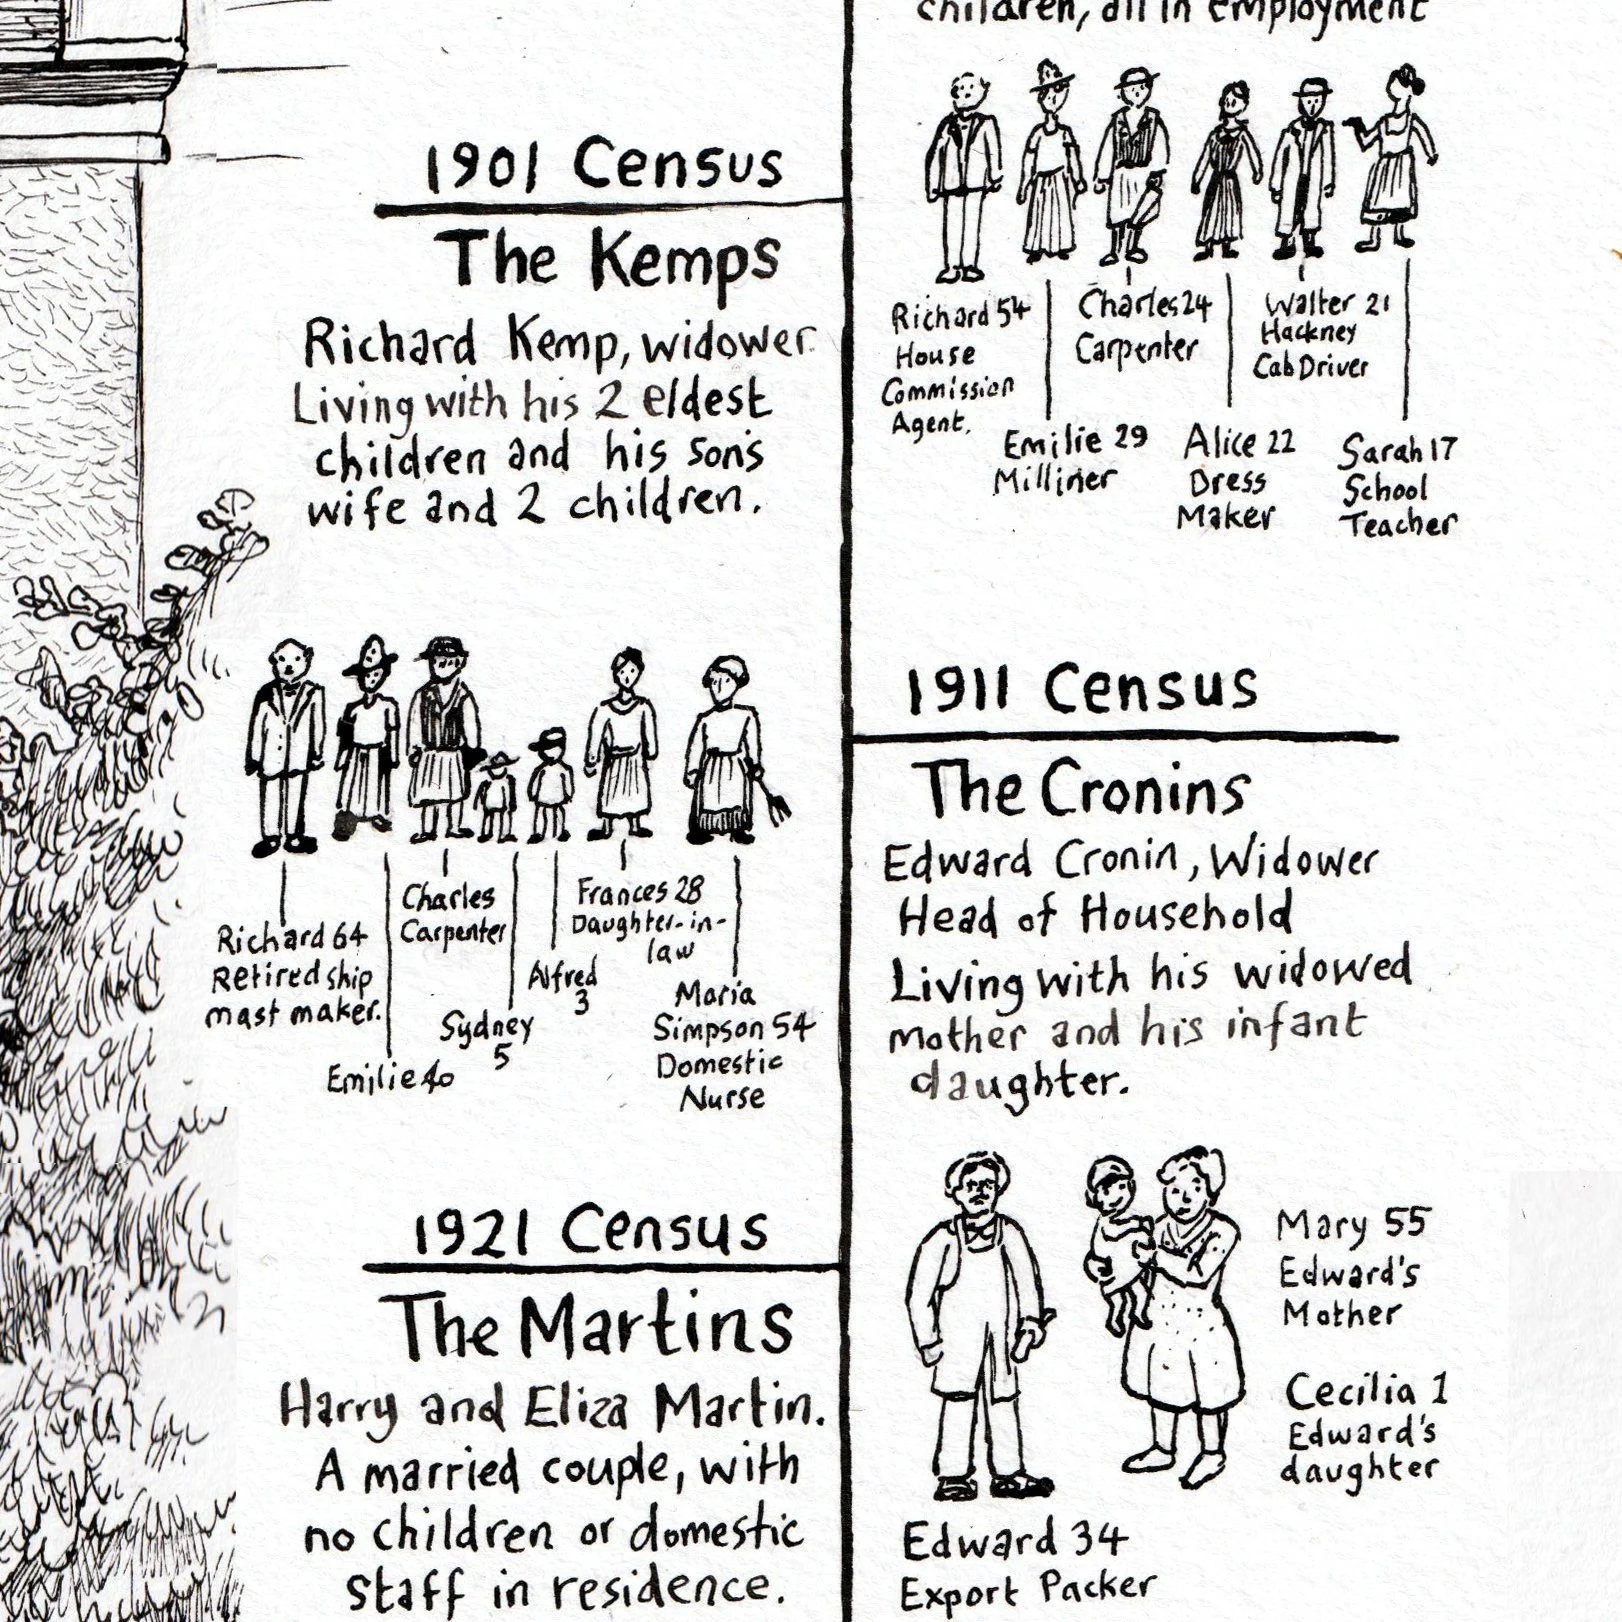 children, all in employment
Richard 54
House
Commission
Agent.
Emilie 29
Milliner
Charles 24
Carpenter
Alice 22
Dress
Maker
Walter 21
Hackney
Cab Driver
Sarah 17
School
Teacher
1901 Census
The Kemps
Richard Kemp, widower
Living with his 2 eldest
children and his son's
wife and 2 children.
Richard 64
Retired ship
mast maker.
Emilie 40
Charles
Carpenter
Sydney
5
Alfred
3
Frances 28
Daughter-in-
law
Maria
Simpson 54
Domestic
Nurse
1911 Census
The Cronins
Edward Cronin, Widower
Head of Household
Living with his widowed
mother and his infant
daughter.
Mary 55
Edward's
Mother
Cecilia 1
Edward's
daughter
Edward 34
Export Packer
1921 Census
The Martins
Harry and Eliza Martin.
A married couple, with
no children or domestic
staff in residence.